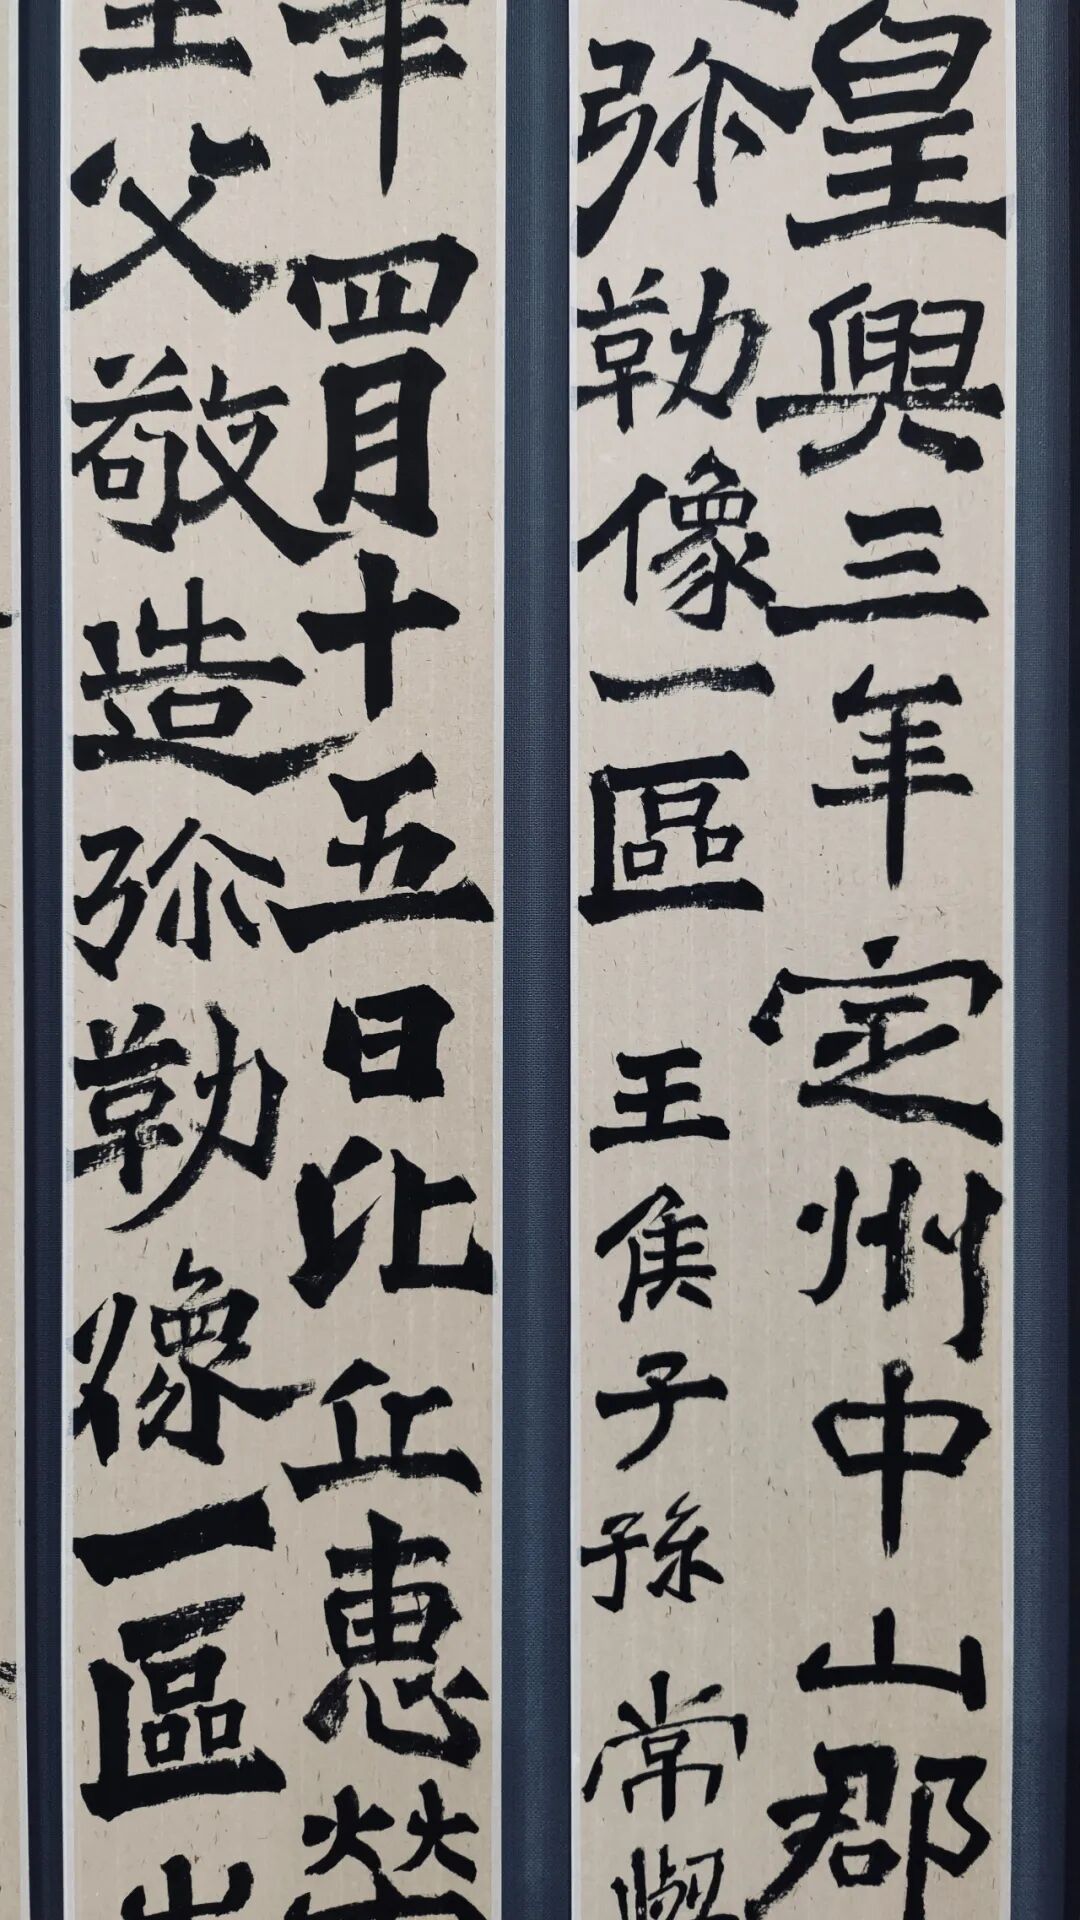 皇興三年定州中山郡
弥勒像一區王侯子孫常與
年四月十五日比丘惠榮
父敬造弥勒像一區